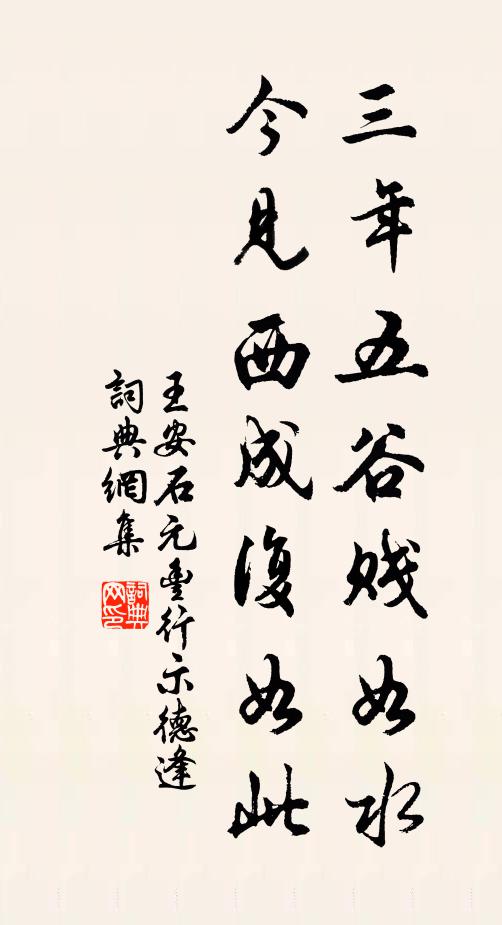 三年五谷贱如水
今見西成復如此
王安石元豐行示德逢
詞典網集
詞典网印